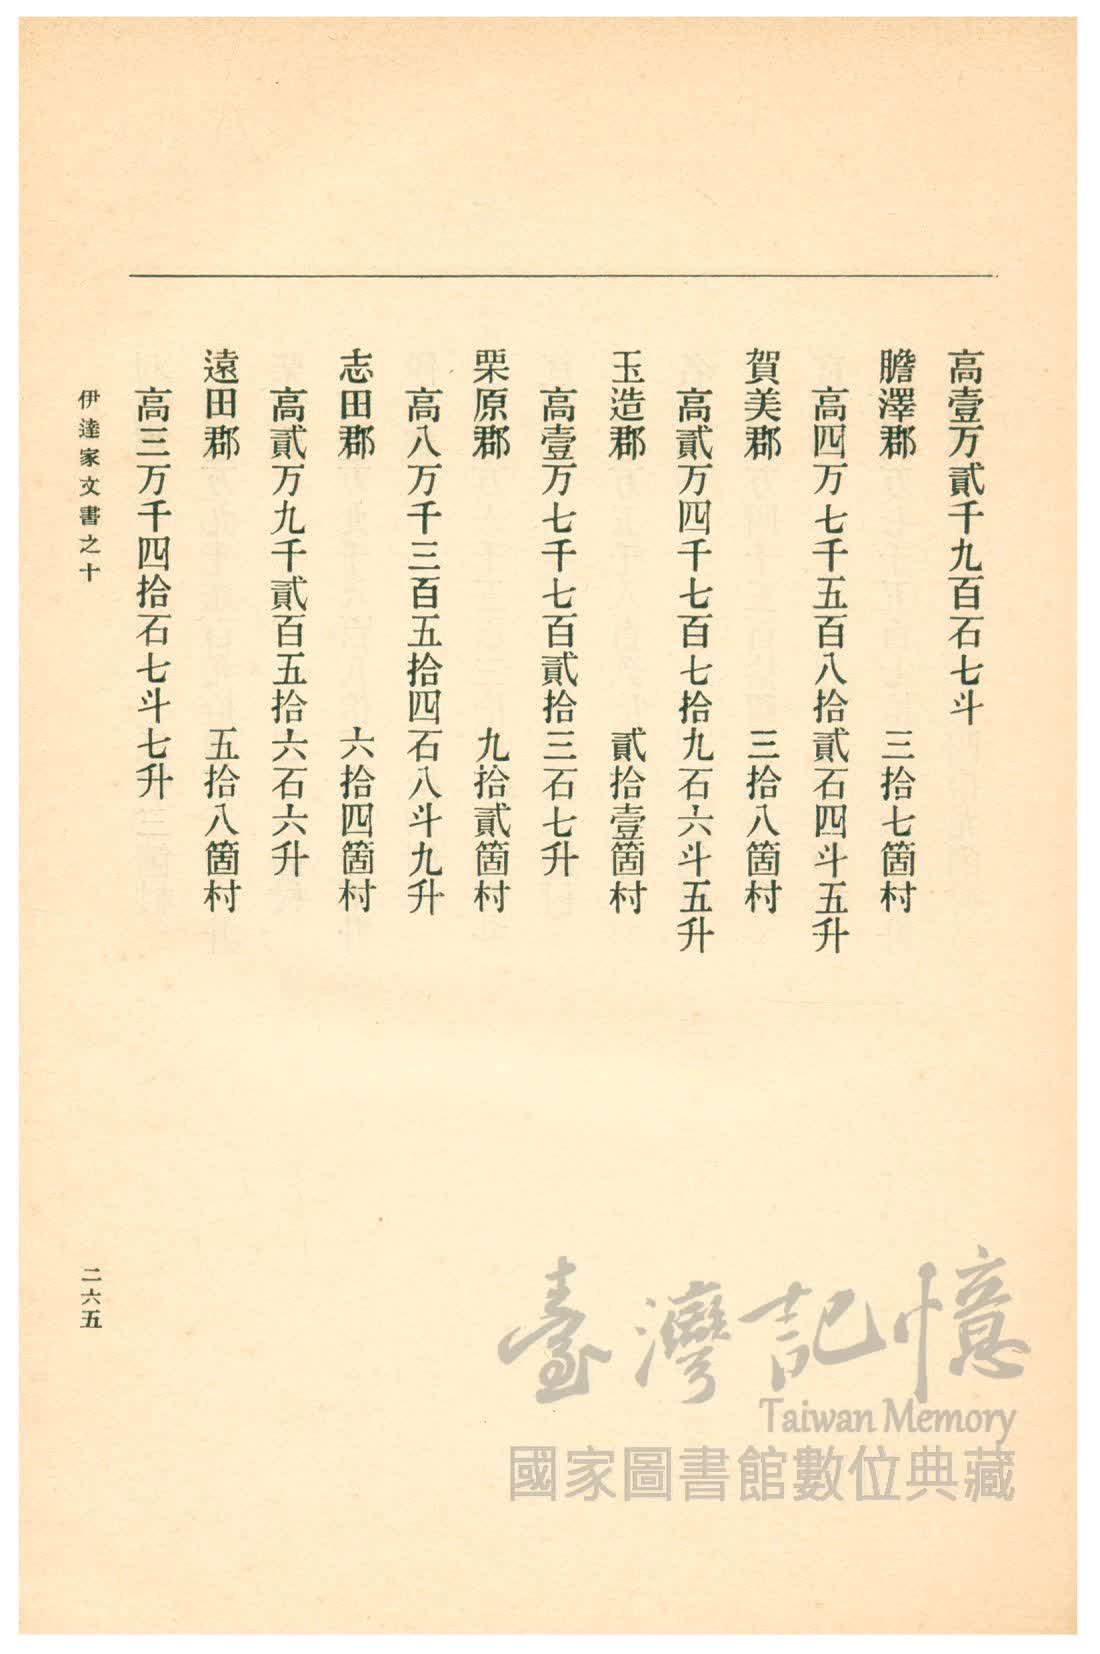 高壹万貳千九百石七斗
膽澤郡　三拾七箇村
高四万七千五百八拾貳石四斗五升
賀美郡　三拾八箇村
高貳万四千七百七拾九石六斗五升
玉造郡　貳拾壹箇村
高壹万七千七百貳拾三石七升
栗原郡　九拾貳箇村
高八万千三百五拾四石八斗九升
志田郡　六拾四箇村
高貳万九千貳百五拾六石六升
遠田郡　五拾八箇村
高三万千四拾石七斗七升
伊達家文書之十
二六五
臺灣記憶
Taiwan Memory
國家圖書館數位典藏